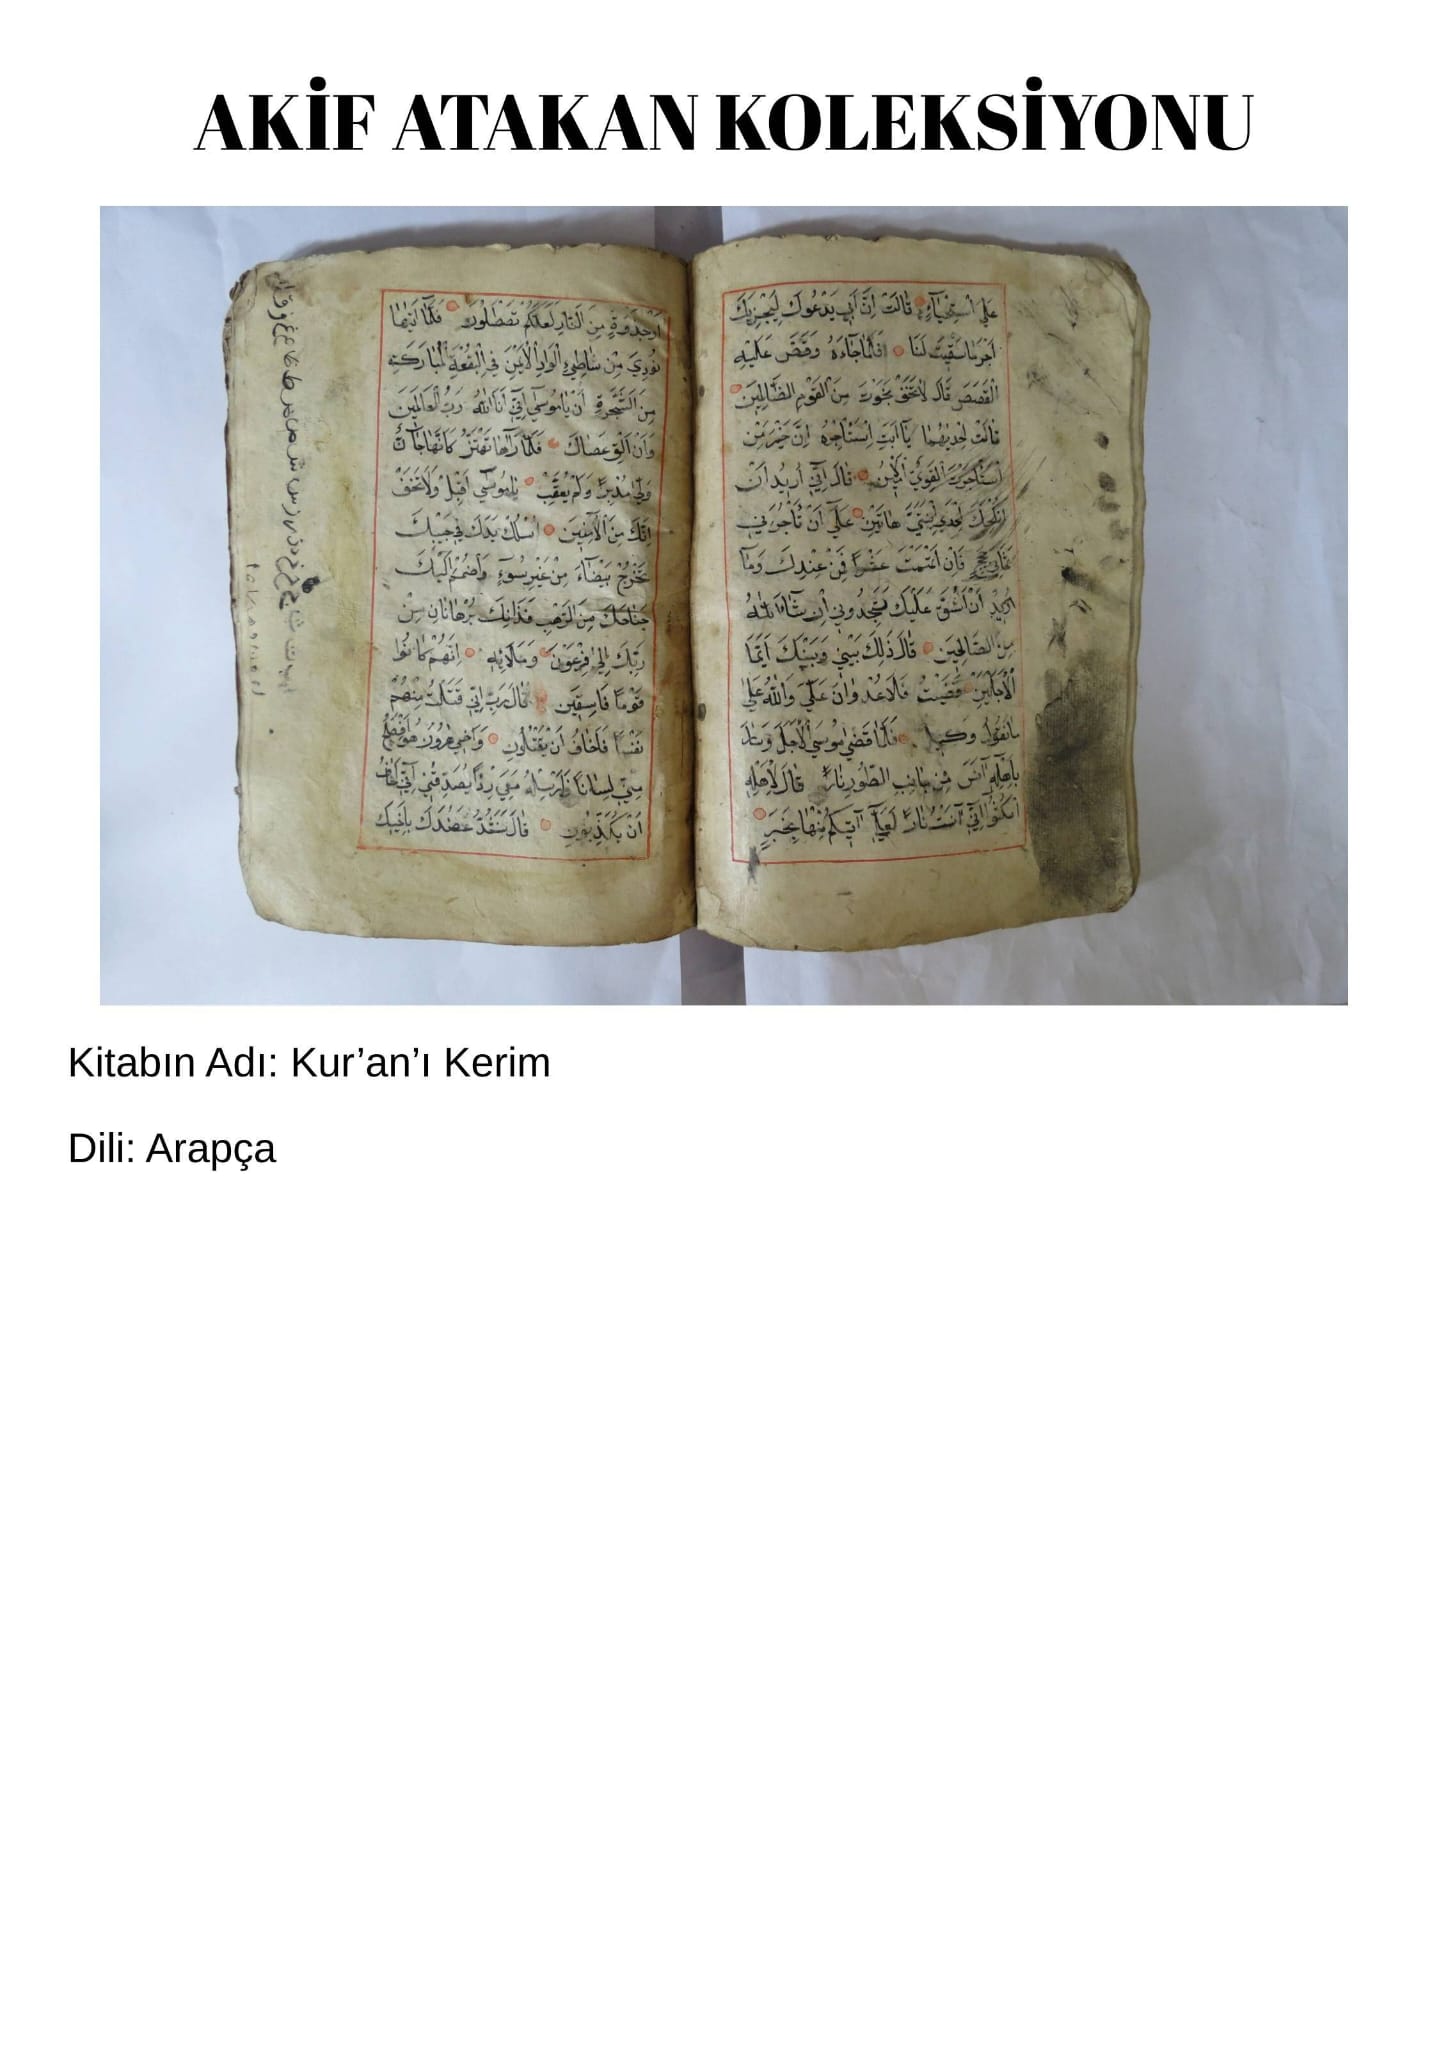 AKİF ATAKAN KOLEKSİYONU
علي استحياء قالت ان ابي يدعوك ليجزيك
اجر ما سقيت لنا فلما جاءه وقص عليه
القصص قال لا تخف نجوت من القوم الظالمين
قالت احديهما يا ابت استاجره ان خير من
استاجرت القوي الامين قال اني اريد ان
انكحك احدي ابنتي هاتين علي ان تاجرني
ثماني حجج فان اتممت عشرا فمن عندك وما
اريد ان اشق عليك ستجدوني ان شاء الله
من الصالحين قال ذلك بيني وبينك ايما
الاجلين قضيت فلا عدوان علي والله علي
ما نقول وكيل فلما قضي موسي الاجل وسار
باهله انس من جانب الطور نارا قال لاهله
امكثوا اني آنست نارا لعلي آتيكم منها بخبر
او جذوة من النار لعلكم تصطلون فلما اتيها
نودي من شاطئ الواد الايمن في البقعة المباركة
من الشجرة ان يا موسي اني انا الله رب العالمين
وان الق عصاك فلما رآها تهتز كانها جان
ولي مدبرا ولم يعقب يا موسي اقبل ولا تخف
انك من الآمنين اسلك يدك في جيبك
تخرج بيضاء من غير سوء واضمم اليك
جناحك من الرهب فذانك برهانان من
ربك الي فرعون وملائه انهم كانوا
قوما فاسقين قال رب اني قتلت منهم
نفسا فاخاف ان يقتلون واخي هرون هو افصح
مني لسانا فارسله معي ردا يصدقني اني اخاف
ان يكذبون قال سنشد عضدك باخيك
Kitabın Adı: Kur’an’ı Kerim
Dili: Arapça